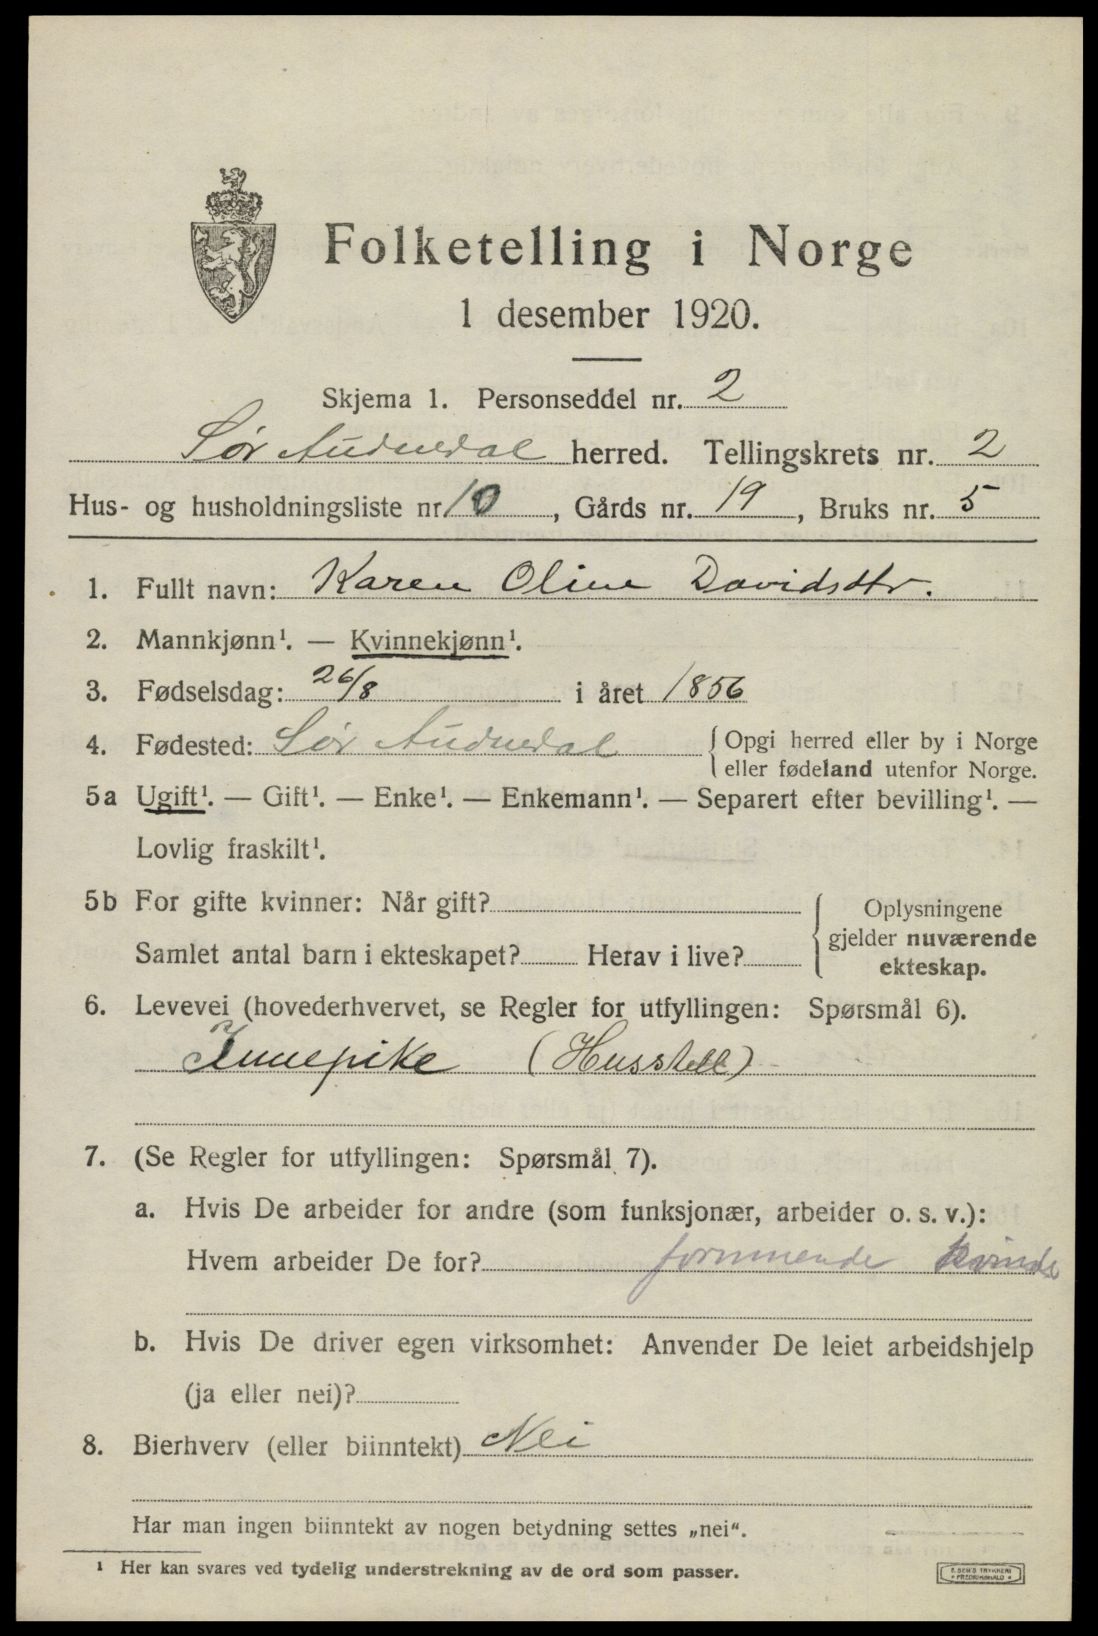 Folketelling i Norge
1 desember 1920.
Skjema 1. Personseddel nr. 2
Sør Audnedal herred. Tellingskrets nr. 2
Hus- og husholdningsliste nr. 10, Gårds nr. 19, Bruks nr. 5
1. Fullt navn: Karen Oline Davidsdtr.
2. Mannkjønn¹. — Kvinnekjønn¹.
3. Fødselsdag: 26/8 i året 1856
4. Fødested: Sør Audnedal { Opgi herred eller by i Norge
eller fødeland utenfor Norge.
5a Ugift¹. — Gift¹. — Enke¹. — Enkemann¹. — Separert efter bevilling¹. —
Lovlig fraskilt¹.
5b For gifte kvinner: Når gift? { Oplysningene
gjelder nuværende
Samlet antal barn i ekteskapet? Herav i live?
ekteskap.
6. Levevei (hovederhvervet, se Regler for utfyllingen: Spørsmål 6).
Innepike (Husstell)
7. (Se Regler for utfyllingen: Spørsmål 7).
a. Hvis De arbeider for andre (som funksjonær, arbeider o. s. v.):
Hvem arbeider De for? kvinde
b. Hvis De driver egen virksomhet: Anvender De leiet arbeidshjelp
(ja eller nei)?
8. Bierhverv (eller biinntekt) Nei
Har man ingen biinntekt av nogen betydning settes „nei“.
¹ Her kan svares ved tydelig understrekning av de ord som passer.
TRYKKERI
FREDRIKSHALD